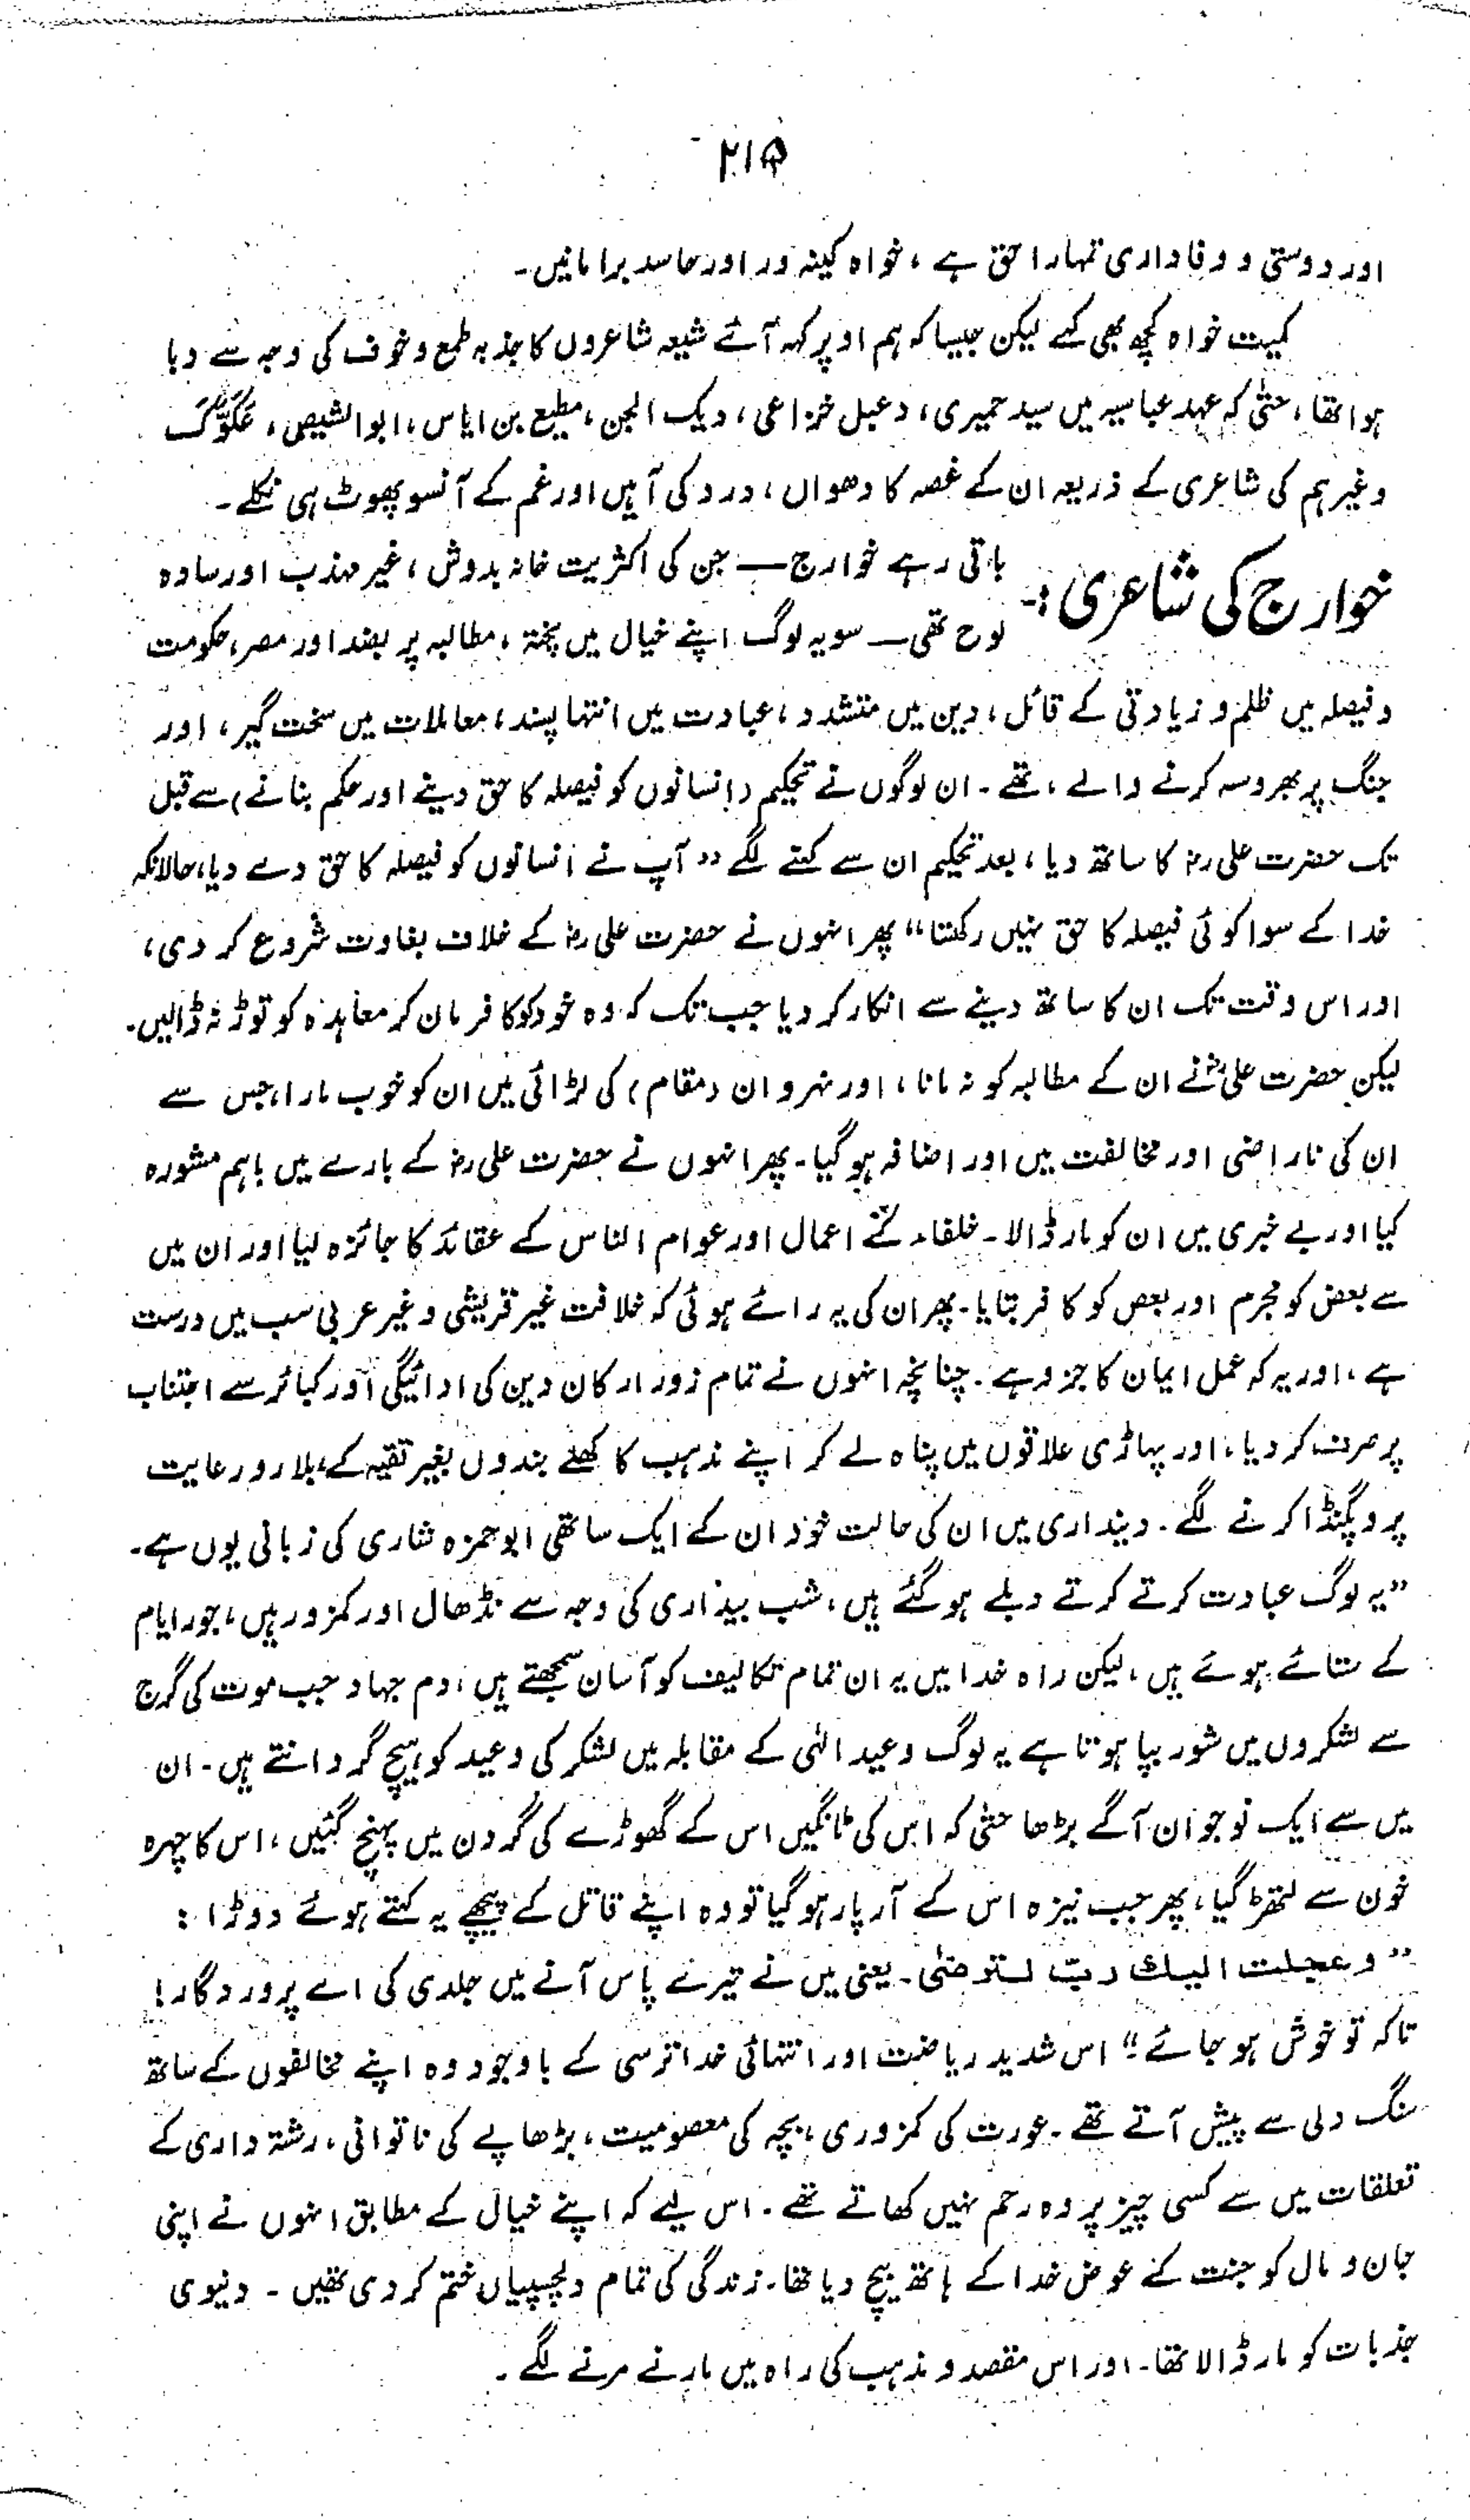 ۲۱۵
اور دوستی و وفاداری تمہارا حق ہے ، خواہ کینہ ور اور حاسد برا مانیں۔
کمیت خواہ کچھ بھی کہے لیکن جیسا کہ ہم اوپر کہہ آئے شیعہ شاعروں کا جذبہ طمع و خوف کی وجہ سے دبا
ہوا تھا ، حتٰی کہ عہد عباسیہ میں سید حمیری ، دعبل خزاعی ، دیک الجن ، مطیع بن ایاس ، ابوالشیص ، عَکَوَّک
وغیرہم کی شاعری کے ذریعہ ان کے غصہ کا دھواں ، درد کی آہیں اور غم کے آنسو پھوٹ ہی نکلے ۔
خوارج کی شاعری :۔ باقی رہے خوارج — جن کی اکثریت خانہ بدوش ، غیر مہذب اور سادہ
لوح تھی — سو یہ لوگ اپنے خیال میں پختہ ، مطالبہ پر بضد اور مصر ، حکومت
و فیصلہ میں ظلم و زیادتی کے قائل ، دین میں متشدد ، عبادت میں انتہا پسند ، معاملات میں سخت گیر ، اور
جنگ پر بھروسہ کرنے والے ، تھے ۔ ان لوگوں نے تحکیم (انسانوں کو فیصلہ کا حق دینے اور حکم بنانے) سے قبل
تک حضرت علی رض کا ساتھ دیا ، بعد تحکیم ان سے کہنے لگے ,, آپ نے انسانوں کو فیصلہ کا حق دے دیا ، حالانکہ
خدا کے سوا کوئی فیصلہ کا حق نہیں رکھتا“ پھر انہوں نے حضرت علی رض کے خلاف بغاوت شروع کر دی ،
اور اس وقت تک ان کا ساتھ دینے سے انکار کر دیا جب تک کہ وہ خود کو کافر مان کر معاہدہ کو توڑ نہ ڈالیں۔
لیکن حضرت علی رض نے ان کے مطالبہ کو نہ مانا ، اور نہروان (مقام) کی لڑائی میں ان کو خوب مارا ، جس سے
ان کی ناراضی اور مخالفت میں اور اضافہ ہو گیا۔ پھر انہوں نے حضرت علی رض کے بارے میں باہم مشورہ
کیا اور بے خبری میں ان کو مار ڈالا۔ خلفاء کے اعمال اور عوام الناس کے عقائد کا جائزہ لیا اور ان میں
سے بعض کو مجرم اور بعض کو کافر بتایا۔ پھر ان کی یہ رائے ہوئی کہ خلافت غیر قریشی و غیر عربی سب میں درست
ہے ، اور یہ کہ عمل ایمان کا جزو ہے ۔ چنانچہ انہوں نے تمام زور ارکان دین کی ادائیگی اور کبائر سے اجتناب
پر صرف کر دیا ، اور پہاڑی علاقوں میں پناہ لے کر اپنے مذہب کا کھلے بندوں بغیر تقیہ کے ، بلا رو رعایت
پروپگنڈا کرنے لگے ۔ دینداری میں ان کی حالت خود ان کے ایک ساتھی ابوحمزہ شاری کی زبانی یوں ہے۔
”یہ لوگ عبادت کرتے کرتے دبلے ہو گئے ہیں ، شب بیداری کی وجہ سے نڈھال اور کمزور ہیں ، جور ایام
کے ستائے ہوئے ہیں ، لیکن راہ خدا میں یہ ان تمام تکالیف کو آسان سمجھتے ہیں ، دم جہاد جب موت کی گرج
سے لشکروں میں شور بپا ہوتا ہے یہ لوگ وعید الٰہی کے مقابلہ میں لشکر کی وعید کو ہیچ گردانتے ہیں ۔ ان
میں سے ایک نوجوان آگے بڑھا حتٰی کہ اس کی ٹانگیں اس کے گھوڑے کی گردن میں پہنچ گئیں ، اس کا چہرہ
خون سے لتھڑ گیا ، پھر جب نیزہ اس کے آر پار ہو گیا تو وہ اپنے قاتل کے پیچھے یہ کہتے ہوئے دوڑا :
” وعجلت الیک ربّ لترضٰی ۔ یعنی میں نے تیرے پاس آنے میں جلدی کی اے پروردگار !
تاکہ تو خوش ہو جائے “ اس شدید ریاضت اور انتہائی خدا ترسی کے باوجود وہ اپنے مخالفوں کے ساتھ
سنگ دلی سے پیش آتے تھے ۔ عورت کی کمزوری ، بچہ کی معصومیت ، بڑھاپے کی ناتوانی ، رشتہ داری کے
تعلقات میں سے کسی چیز پر وہ رحم نہیں کھاتے تھے ۔ اس لیے کہ اپنے خیال کے مطابق انہوں نے اپنی
جان و مال کو جنت کے عوض خدا کے ہاتھ بیچ دیا تھا ۔ زندگی کی تمام دلچسپیاں ختم کر دی تھیں ۔ دنیوی
جذبات کو مار ڈالا تھا ۔ اور اس مقصد و مذہب کی راہ میں مارنے مرنے لگے ۔